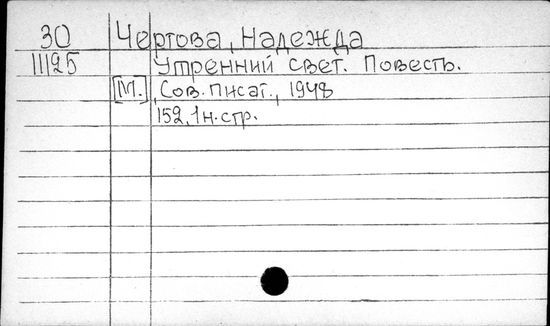 30 Чертова, Надежда
11125 Утренний свет. Повесть.
[М.], Сов. писат., 1948
152, 1 н. стр.